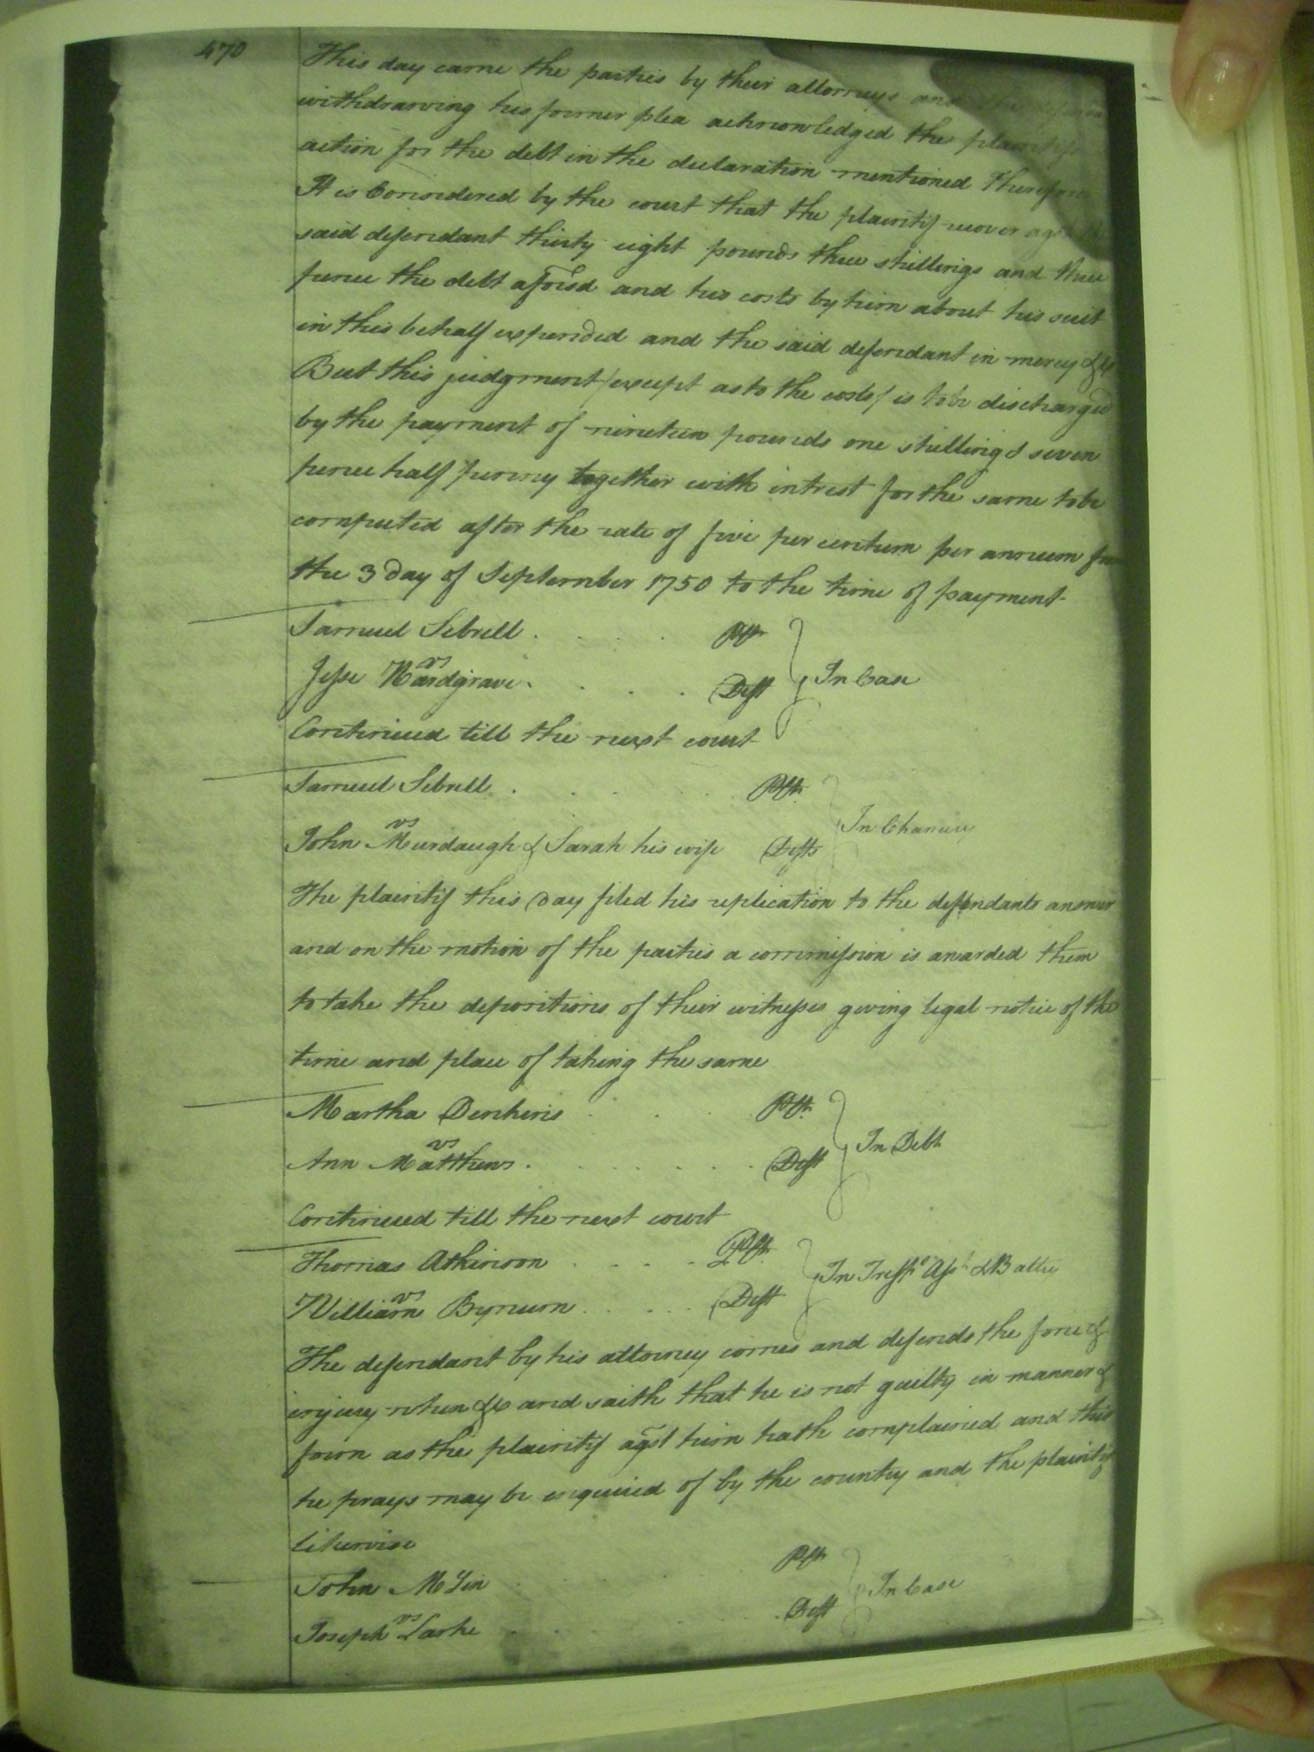 470
This day came the parties by their attorneys and the
withdrawing his former plea acknowledged the plaintifs
action for the debt in the declaration mentioned Therefore
It is Considered by the court that the plaintif recover agst
said defendant thirty eight pounds three shillings and three
pence the debt aforesd and his costs by him about his suit
in this behalf expended and the said defendant in mercy &c
But this judgment (except as to the costs) is to be discharged
by the payment of nineteen pounds one shilling & seven
pence half penny together with intrest for the same to be
computed after the rate of five per centum per annum from
the 3 day of September 1750 to the time of payment
Samuel Sebrell . . . . Plt
vs } In Case
Jesse Hardgrave . . . . Deft
Continued till the next court
Samuel Sebrell . . . . Plt
vs } In Chancery
John Murdaugh & Sarah his wife Defts
The plaintif this Day filed his replication to the defendants answer
and on the motion of the parties a commission is awarded them
to take the depositions of their witnesses giving legal notice of the
time and place of taking the same
Martha . . . Plt
vs } In Debt
Ann Matthews . . . . . Deft
Continued till the next court
Thomas Atkinson . . . . Plt
vs } In Tresps Asst & Battie
William Bynum . . . . Deft
The defendant by his attorney comes and defends the force &
injury when &c and saith that he is not guilty in manner &
form as the plaintif agst him hath complained and this
he prays may be inquired of by the country and the plaintif
likewise
John . . . Plt
vs } In Case
Joseph . . . Deft